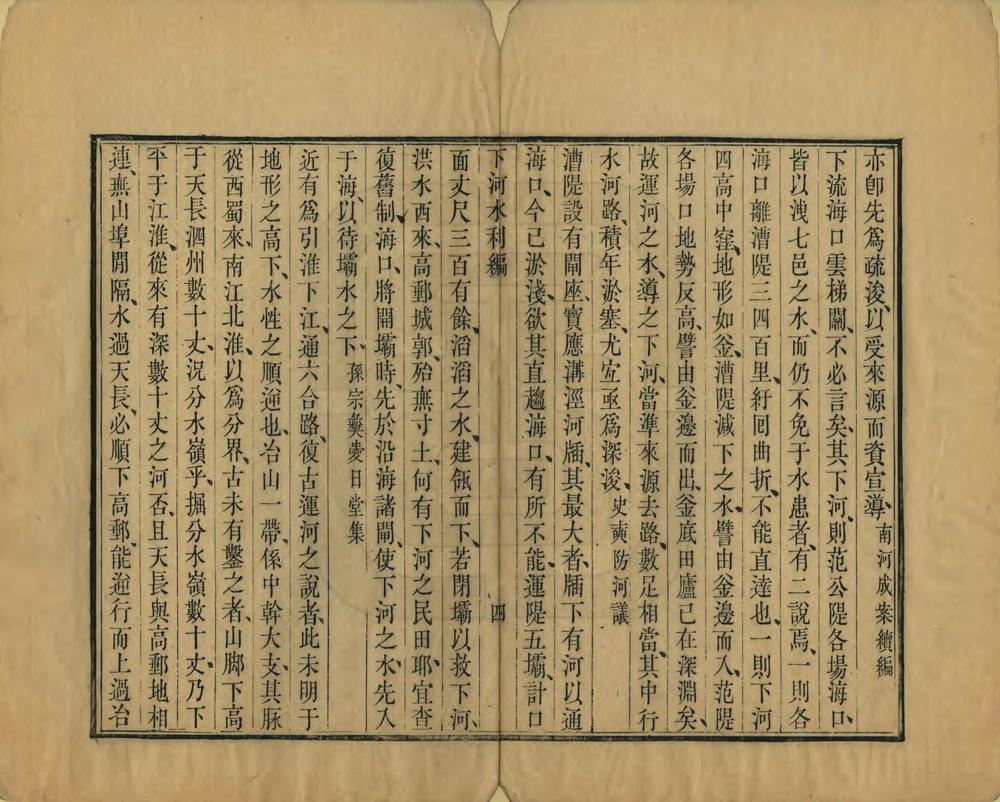 亦卽先爲疏浚、以受來源而資宣導、南河成案續編
下流海口雲梯關、不必言矣、其下河、則范公隄各場海口、
皆以洩七邑之水、而仍不免于水患者、有二說焉、一則各
海口離漕隄三四百里、紆囘曲折、不能直達也、一則下河
四高中窪、地形如釜、漕隄減下之水、譬由釜邊而入、范隄
各場口地勢反高、譬由釜邊而出、釜底田廬已在深淵矣、
故運河之水、導之下河、當準來源去路、數足相當、其中行
水河路、積年淤塞、尤宐亟爲深浚、史奭防河議
漕隄設有閘座、寶應溝涇河牐、其最大者、牐下有河以通
海口、今已淤淺、欲其直趨海口、有所不能、運隄五壩、計口
下河水利編 四
面丈尺三百有餘、滔滔之水、建瓴而下、若閉壩以救下河、
洪水西來、高郵城郭、殆無寸土、何有下河之民田耶、宜查
復舊制、海口、將開壩時、先於沿海諸閘、使下河之水、先入
于海、以待壩水之下、孫宗彝愛日堂集
近有爲引淮下江、通六合路、復古運河之說者、此未明于
地形之高下、水性之順逆也、冶山一帶、係中幹大支、其脈
從西蜀來、南江北淮、以爲分界、古未有鑿之者、山脚下高
于天長泗州數十丈、況分水嶺乎、掘分水嶺數十丈、乃下
平于江淮、從來有深數十丈之河否、且天長與高郵地相
連、無山埠閒隔、水過天長、必順下高郵、能逆行而上過冶